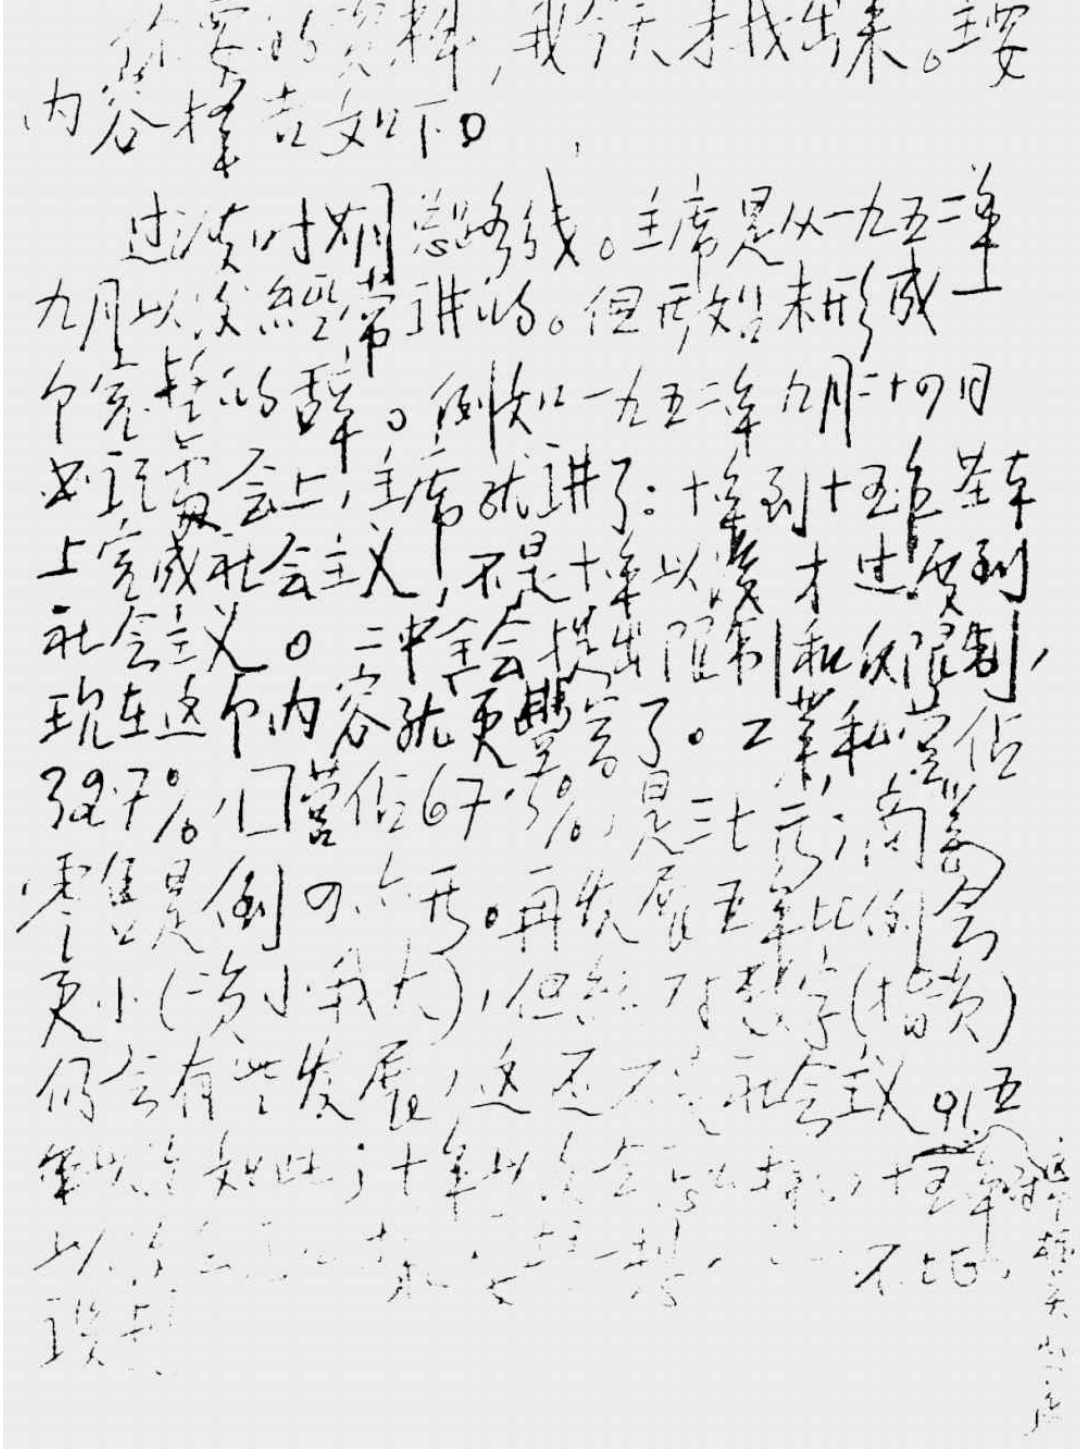 你要的资料，我今天才找出来。主要
内容择告如下。
过渡时期总路线。主席是从一九五二年
九月以后經常讲的。但开始未形成一
个完整的辞。例如一九五二年九月二十四日
书记處会上，主席就讲了：十年到十五年基本
上完成社会主义，不是十年以後才过度到
社会主义。二中全会提出限制和反限制，
现在这个内容就更豐富了。工業私营佔
32.7%，国營佔67.3%，是三七开；商業
零售是倒四、六开。再发展五年比例会
更小（资小我大），但絕对数字（指资）
仍会有些发展，这还不是社会主义。五
年以后如此；十年以后会怎么样，十五年
以后会怎么样，要想一想。